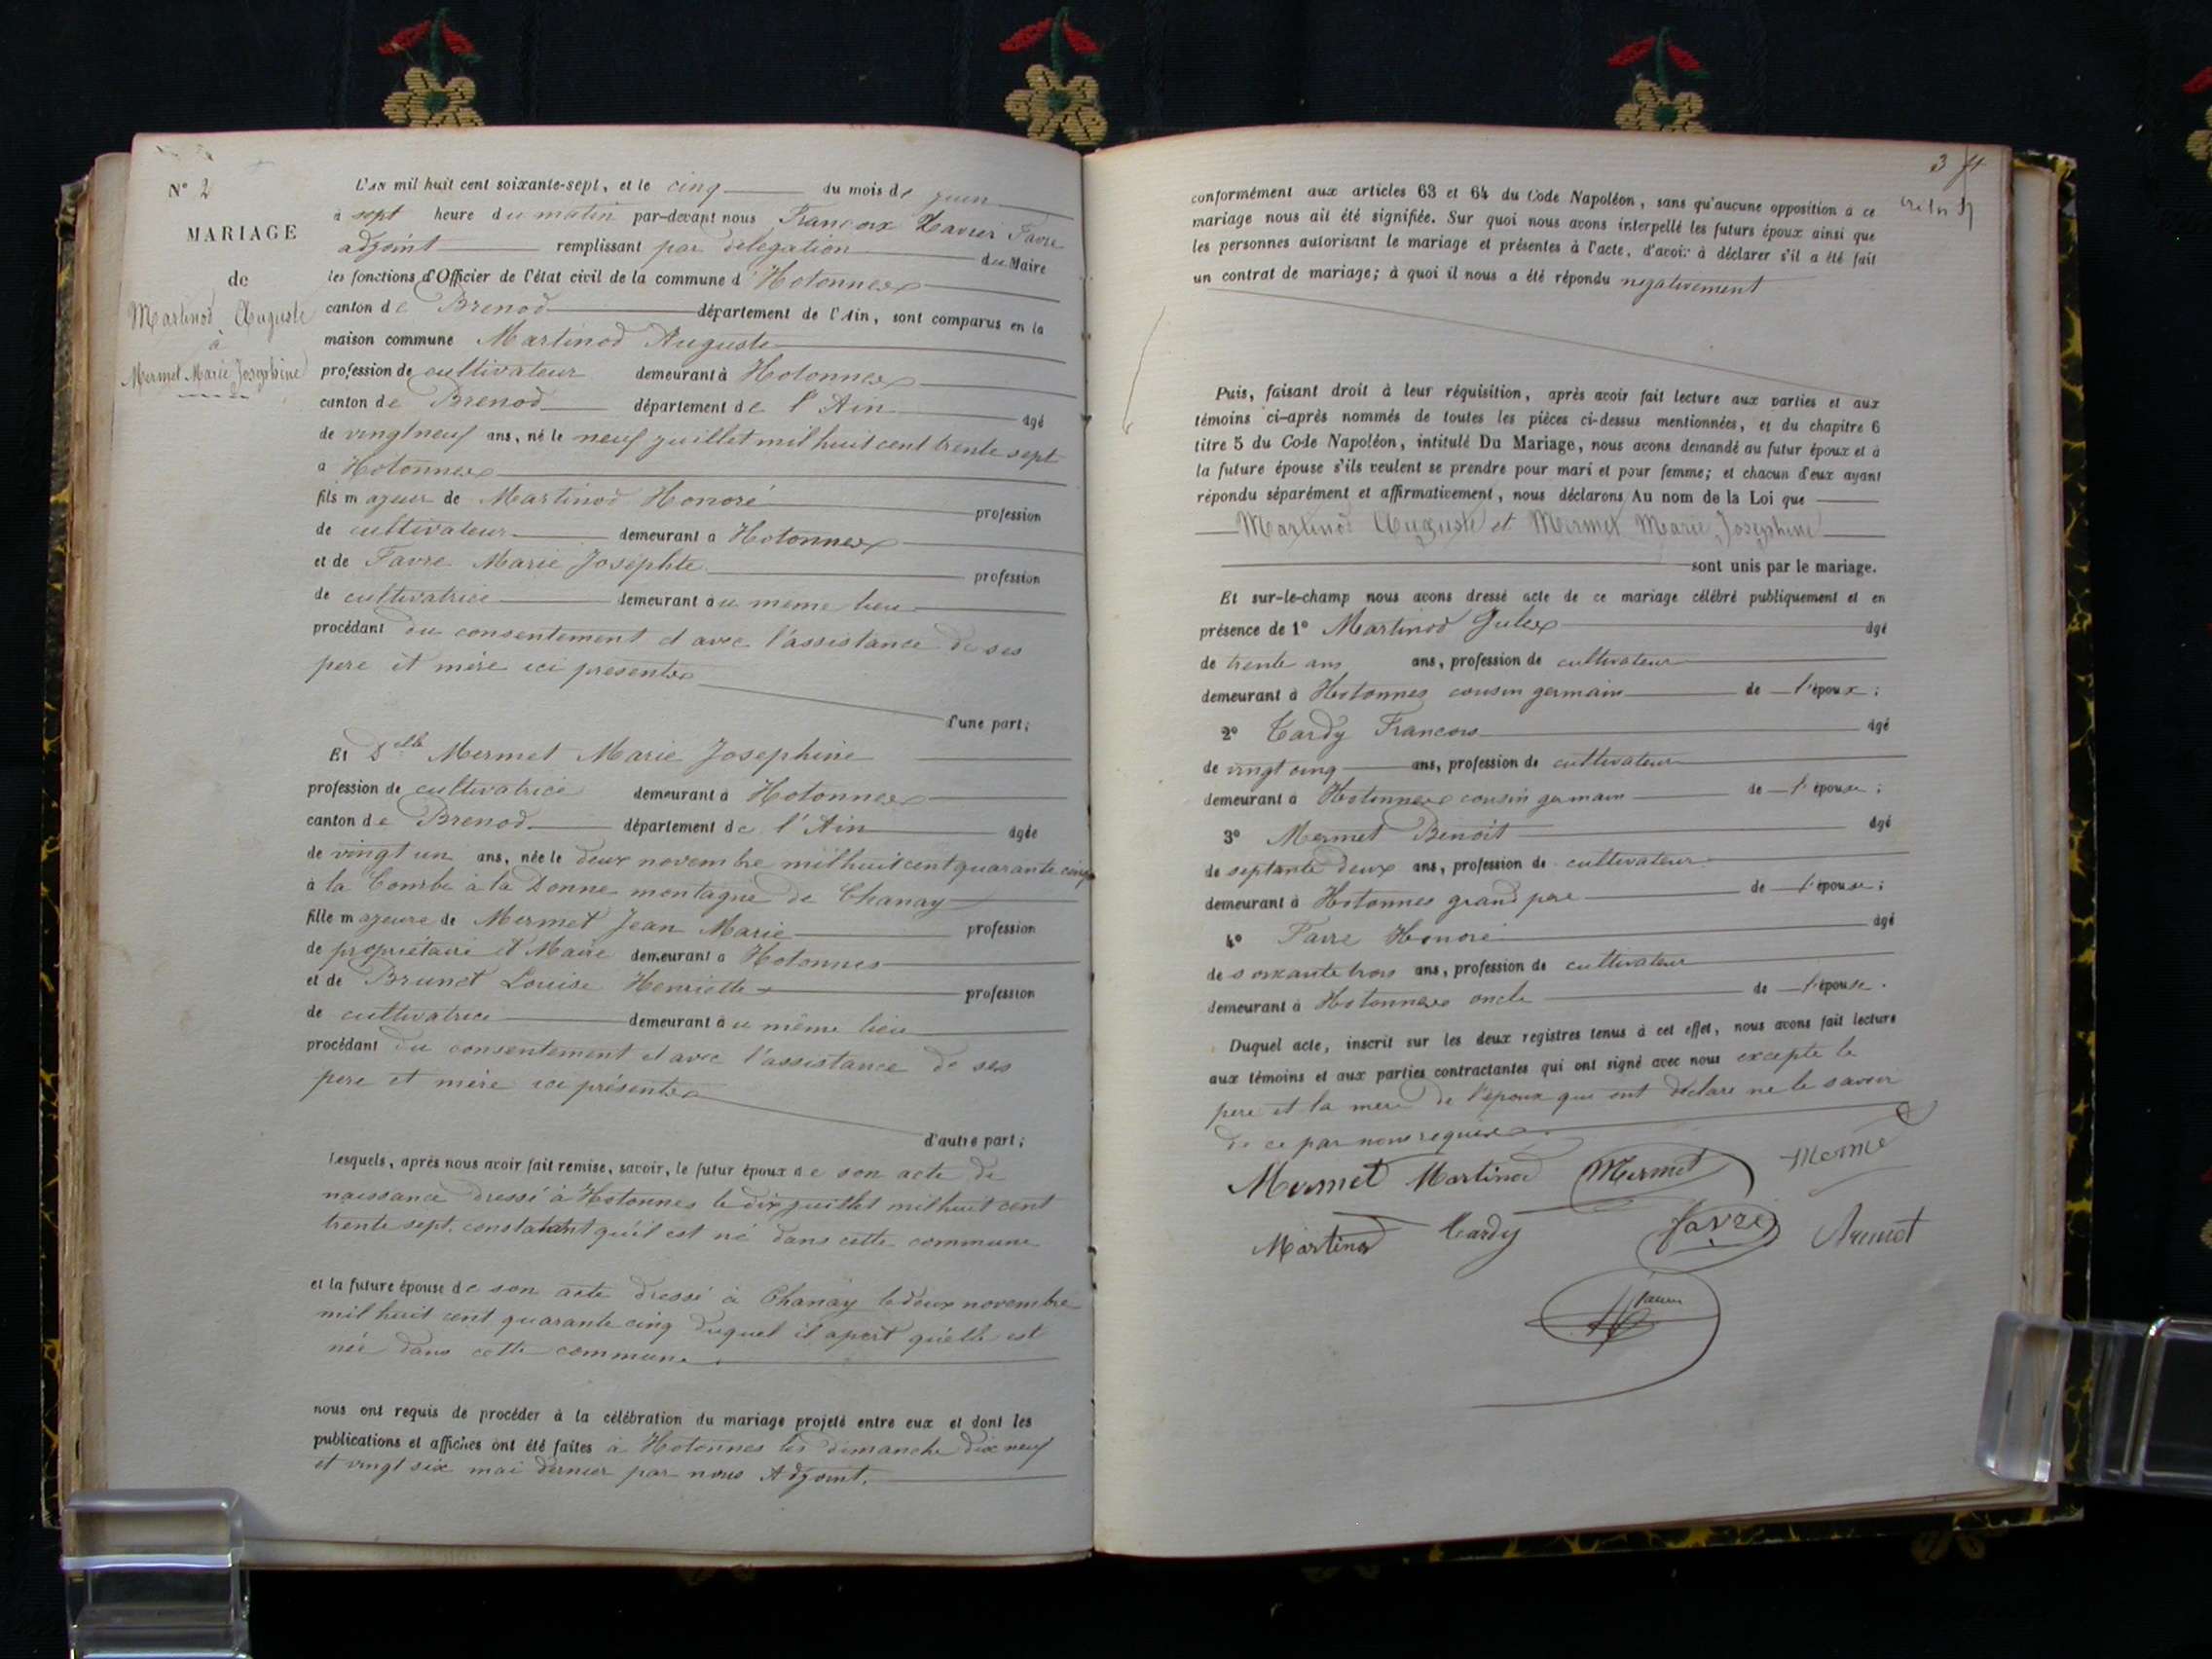 N° 2
MARIAGE
de
Martinod Auguste
à
Mermet Marie Josephine
L'AN mil huit cent soixante-sept, et le cinq du mois de juin
à sept heure du matin par-devant nous Francois Xavier Favre
adjoint remplissant par delegation du Maire
les fonctions d'Officier de l'état civil de la commune d'Hotonnes
canton de Brenod département de l'Ain, sont comparus en la
maison commune Martinod Auguste
profession de cultivateur demeurant à Hotonnes
canton de Brenod département de l'Ain âgé
de vingt neuf ans, né le neuf juillet mil huit cent trente sept
à Hotonnes
fils majeur de Martinod Honoré profession
de cultivateur demeurant à Hotonnes
et de Favre Marie Joséphte profession
de cultivatrice demeurant au meme lieu
procédant du consentement et avec l'assistance de ses
pere et mère ici presents
d'une part;
Et Delle Mermet Marie Josephine
profession de cultivatrice demeurant à Hotonnes
canton de Brenod département de l'Ain âgée
de vingt un ans, née le deux novembre mil huit cent quarante cinq
à la Combe à la Donne montagne de Chanay
fille majeure de Mermet Jean Marie profession
de propriétaire et Maire demeurant à Hotonnes
et de Brunet Louise Henriette profession
de cultivatrice demeurant au même lieu
procédant du consentement et avec l'assistance de ses
pere et mère ici présents
d'autre part;
Lesquels, après nous avoir fait remise, savoir, le futur époux de son acte de
naissance dressé à Hotonnes le dix juillet mil huit cent
trente sept. constatant qu'il est né dans cette commune
et la future épouse de son acte dressé à Chanay le deux novembre
mil huit cent quarante cinq duquel il apert qu'elle est
née dans cette commune
nous ont requis de procéder à la célébration du mariage projeté entre eux et dont les
publications et affiches ont été faites à Hotonnes les dimanche dix neuf
et vingt six mai dernier par nous Adjoint.
3
conformément aux articles 63 et 64 du Code Napoléon, sans qu'aucune opposition à ce
mariage nous ait été signifiée. Sur quoi nous avons interpellé les futurs époux ainsi que
les personnes autorisant le mariage et présentes à l'acte, d'avoir à déclarer s'il a été fait
un contrat de mariage; à quoi il nous a été répondu negativement
Puis, faisant droit à leur réquisition, après avoir fait lecture aux parties et aux
témoins ci-après nommés de toutes les pièces ci-dessus mentionnées, et du chapitre 6
titre 5 du Code Napoléon, intitulé Du Mariage, nous avons demandé au futur époux et à
la future épouse s'ils veulent se prendre pour mari et pour femme; et chacun d'eux ayant
répondu séparément et affirmativement, nous déclarons Au nom de la Loi que
Martinod Auguste et Mermet Marie Josephine
sont unis par le mariage.
Et sur-le-champ nous avons dressé acte de ce mariage célébré publiquement et en
présence de 1° Martinod Jules âgé
de trente ans ans, profession de cultivateur
demeurant à Hotonnes cousin germain de l'époux;
2° Tardy Francois âgé
de vingt cinq ans, profession de cultivateur
demeurant à Hotonnes cousin germain de l'épouse;
3° Mermet Benoit âgé
de septante deux ans, profession de cultivateur
demeurant à Hotonnes grand pere de l'épouse;
4° Favre Honoré âgé
de soixante trois ans, profession de cultivateur
demeurant à Hotonnes oncle de l'épouse.
Duquel acte, inscrit sur les deux registres tenus à cet effet, nous avons fait lecture
aux témoins et aux parties contractantes qui ont signé avec nous excepte le
pere et la mere de l'époux qui ont déclare ne le savoir
de ce par nous requis
Mermet Martinod Mermet Mermé
Martinod Tardy favre Brunet